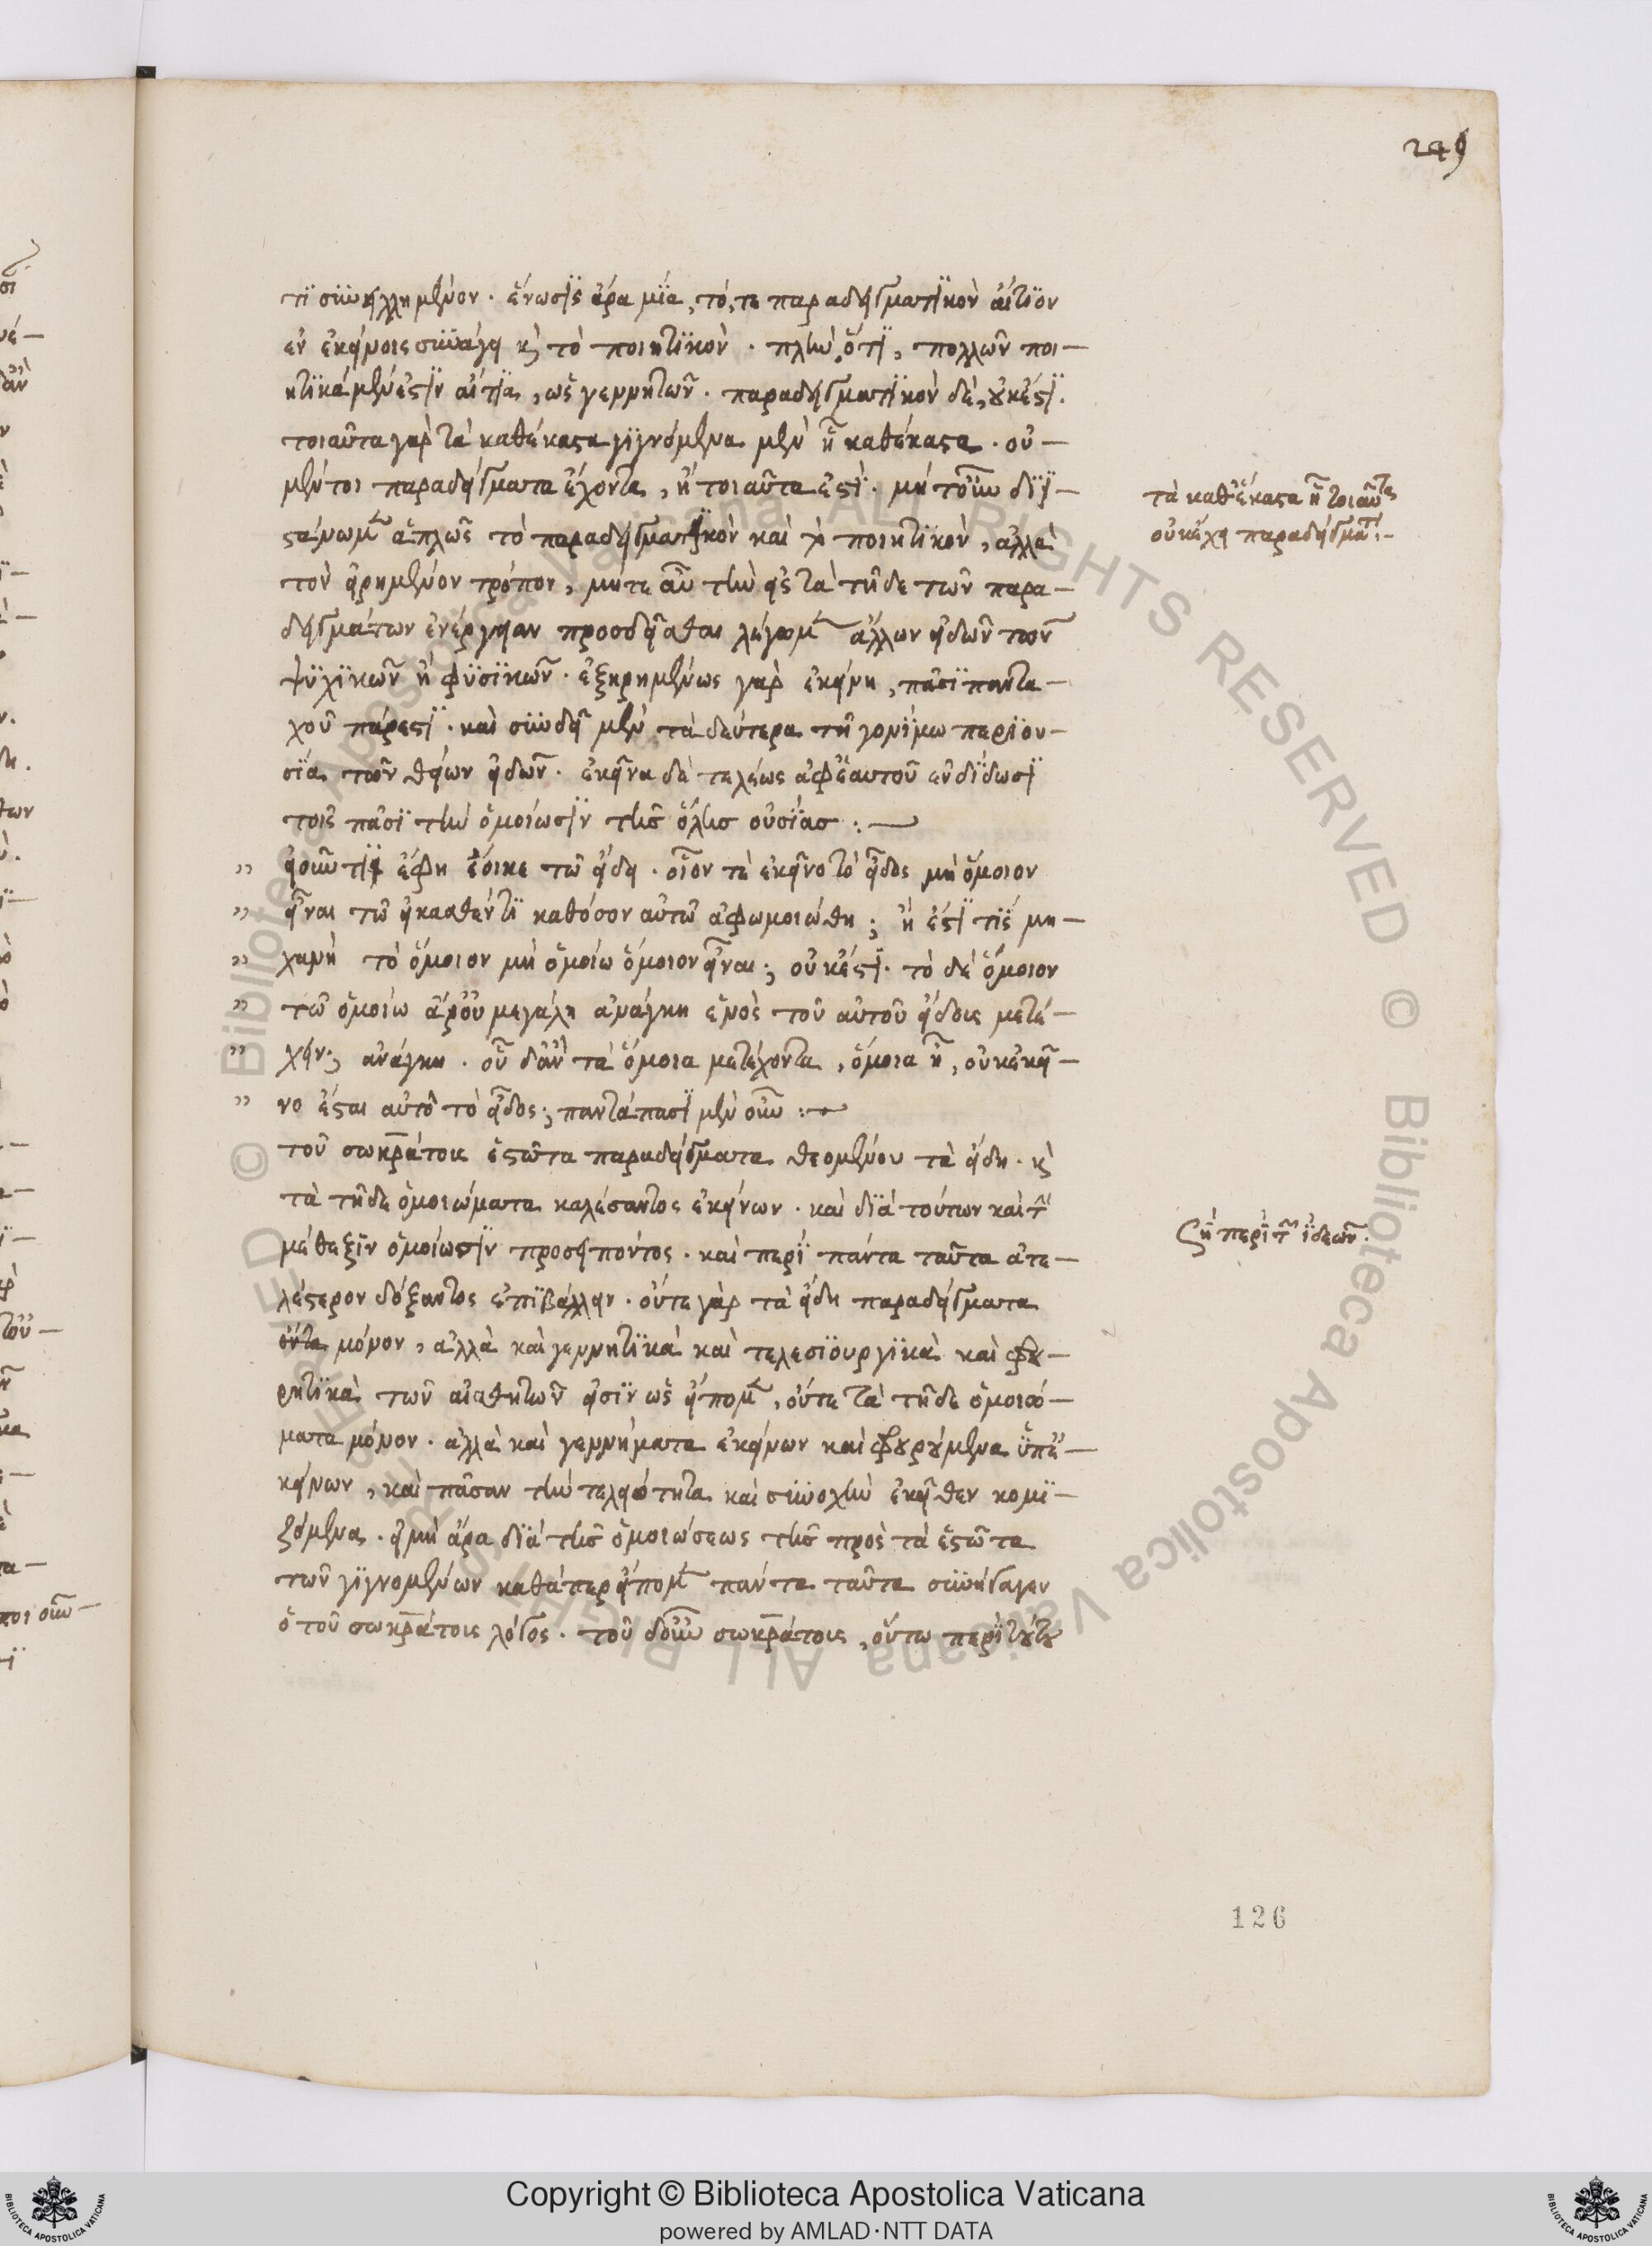 249
τι συνῃλλημένον. ἕνωσις ἄρα μία, τό, τε παραδειγματικὸν αἴτιον
ἐν ἐκείνοις συνάγει κ τὸ ποιητικὸν. πλὴν ὅτι, πολλῶν ποι-
ητικὰ μὲν ἐστὶν αἴτια, ὡς γεννητῶν. παραδειγματικὸν δὲ, οὐκέστι.
τοιαῦτα γὰρ τὰ καθέκαστα γιγνόμενα μὲν ἦ καθέκαστα. οὐ-
μέντοι παραδείγματα ἔχοντα, ἦ τοιαῦτα ἐστί. μὴ τοίνυν διϊ-
στάνωμεν ἁπλῶς τὸ παραδειγματικὸν καὶ τὸ ποιητικὸν, ἀλλὰ
τὸν εἰρημένον τρόπον, μήτε αὖ τὴν εἰς τὰ τῆδε τῶν παρα-
δειγμάτων ἐνέργειαν προσδεῖσθαι λέγωμεν ἄλλων εἰδῶν τῶν
ψυχικῶν ἢ φυσικῶν. ἐξῃρημένως γὰρ ἐκείνη, πᾶσι παντα-
χοῦ πάρεστι. καὶ συνδεῖ μὲν τὰ δεύτερα τῆ γονίμω περιου-
σία τῶν θείων εἰδῶν. ἐκεῖνα δὲ τελέως ἀφ' ἑαυτοῦ ἐνδίδωσι
τοῖς πᾶσι τὴν ὁμοίωσιν τῆς ὅλης οὐσίας :—
" εἰ οὖν τι ἔφη ἔοικε τῶ εἴδει. οἷόν τε ἐκεῖνο τὸ εἶδος μὴ ὅμοιον
" εἶναι τῶ εἰκασθέντι καθόσον αὐτῶ ἀφωμοιώθη; ἢ ἔστι τις μη-
" χανὴ τὸ ὅμοιον μὴ ὁμοίω ὅμοιον εἶναι; οὐκέστι. τὸ δὲ ὅμοιον
" τῶ ὁμοίω ἆρ' οὐ μεγάλη ἀνάγκη ἑνὸς τοῦ αὐτοῦ εἴδους μετέ-
" χειν; ἀνάγκη. οὗ δ' ἂν τὰ ὅμοια μετέχοντα, ὅμοια ἦ, οὐκ ἐκεῖ-
" νο ἔσται αὐτὸ τὸ εἶδος; παντάπασι μὲν οὖν :—
τοῦ σωκράτους ἑστῶτα παραδείγματα θεομένου τὰ εἴδη. κ
τὰ τῆδε ὁμοιώματα καλέσαντος ἐκείνων. καὶ διὰ τούτων καὶ τὴν
μέθεξιν ὁμοίωσιν προσειπόντος. καὶ περὶ πάντα ταῦτα ἀτε-
λέστερον δόξαντος ἐπιβάλλειν. οὔτε γὰρ τὰ εἴδη παραδείγματα
ὄντα μόνον, ἀλλὰ καὶ γεννητικὰ καὶ τελεσιουργικὰ καὶ φρου-
ρητικὰ τῶν αἰσθητῶν εἰσὶν ὡς εἴπομεν, οὔτε τὰ τῆδε ὁμοιώ-
ματα μόνον. ἀλλὰ καὶ γεννήματα ἐκείνων καὶ φρουρούμενα ὑπ' ἐ-
κείνων, καὶ πᾶσαν τὴν τελειότητα καὶ συνοχὴν ἐκεῖθεν κομι-
ζόμενα. εἰ μὴ ἄρα διὰ τῆς ὁμοιώσεως τῆς πρὸς τὰ ἑστῶτα
τῶν γιγνομένων καθάπερ εἴπομεν πάντα ταῦτα συνήγαγεν
ὁ τοῦ σωκράτους λόγος. τοῦ δ' οὖν σωκράτους, οὕτω περὶ τούτου
τὰ καθ' ἕκαστα ἦ τοιαῦτα
οὐκ ἔχει παραδείγματα.-
ζή περὶ τῶν ἰδεῶν.
126
Copyright © Biblioteca Apostolica Vaticana
powered by AMLAD·NTT DATA